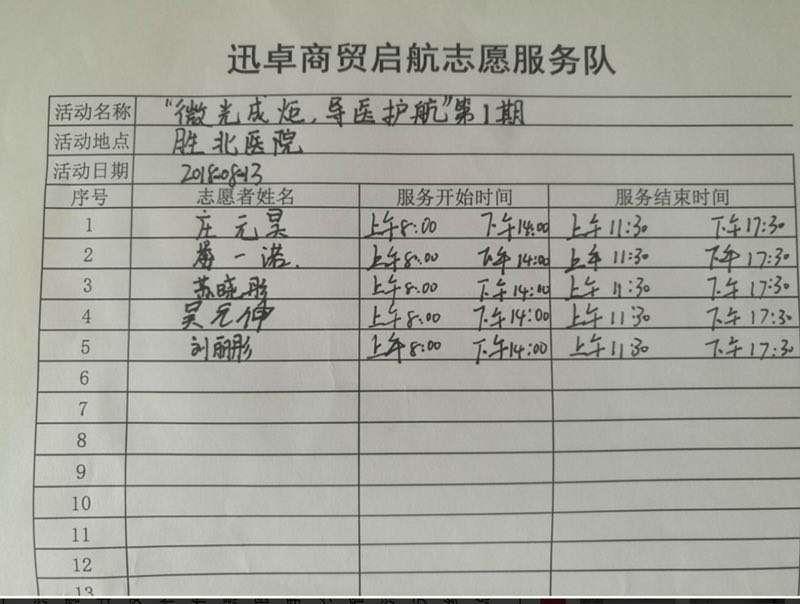 迅卓商贸启航志愿服务队
活动名称 “微光成炬,导医护航”第1期
活动地点 胜北医院
活动日期 2018-08-13
序号 志愿者姓名 服务开始时间 服务结束时间
1 庄元昊 上午8:00 下午14:00 上午11:30 下午17:30
2 一诺. 上午8:00 下午14:00 上午11:30 下午17:30
3 苏晓彤 上午8:00 下午14:00 上午11:30 下午17:30
4 吴元伸 上午8:00 下午14:00 上午11:30 下午17:30
5 刘丽彤 上午8:00 下午14:00 上午11:30 下午17:30
6
7
8
9
10
11
12
13